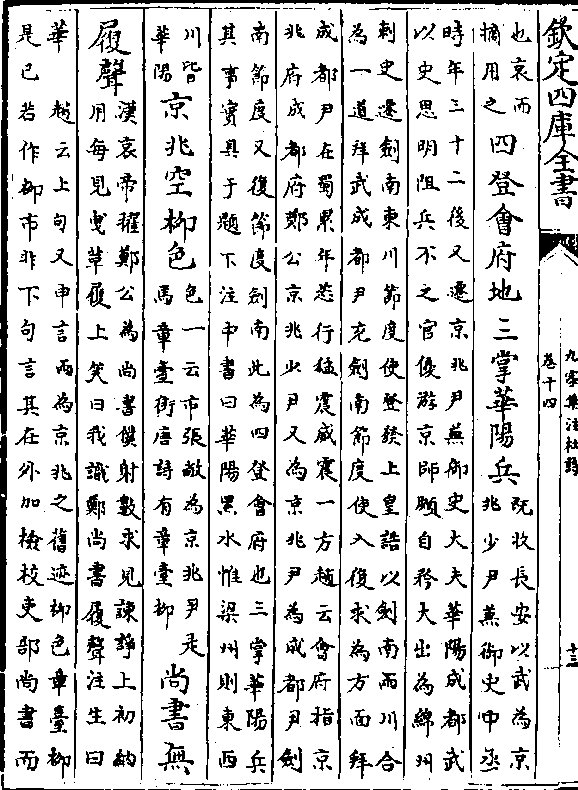 欽定四庫全書
九家集注杜詩
卷十四
十三
也哀而
摘用之
四登會府地三掌華陽兵
既收長安以武為京
兆少尹兼御史中丞
時年三十二後又遷京兆尹兼御史大夫華陽成都武
以史思明阻兵不之官優游京師頗自矜大出為綿州
刺史遷劍南東川節度使登發上皇誥以劍南兩川合
為一道拜武成都尹充劍南節度使入復求為方面拜
成都尹在蜀累年恣行猛震威震一方趙云會府指京
兆府成都府鄭公京兆少尹又為京兆尹為成都尹劍
南節度又復節度劍南此為四登會府也三掌華陽兵
其事實具于題下注中書曰華陽黑水惟梁州則東西
川皆
華陽
京兆空柳色
色一云市張敞為京兆尹走
馬章臺街唐詩有章臺柳
尚書無
履聲
漢哀帝擢鄭公為尚書僕射數求見諫諍上初納
用每見曳草履上笑曰我識鄭尚書履聲注生曰
華 趙云上句又申言而為京兆之舊迹柳色章臺柳
是已若作柳市非下句言其在外加檢校吏部尚書而